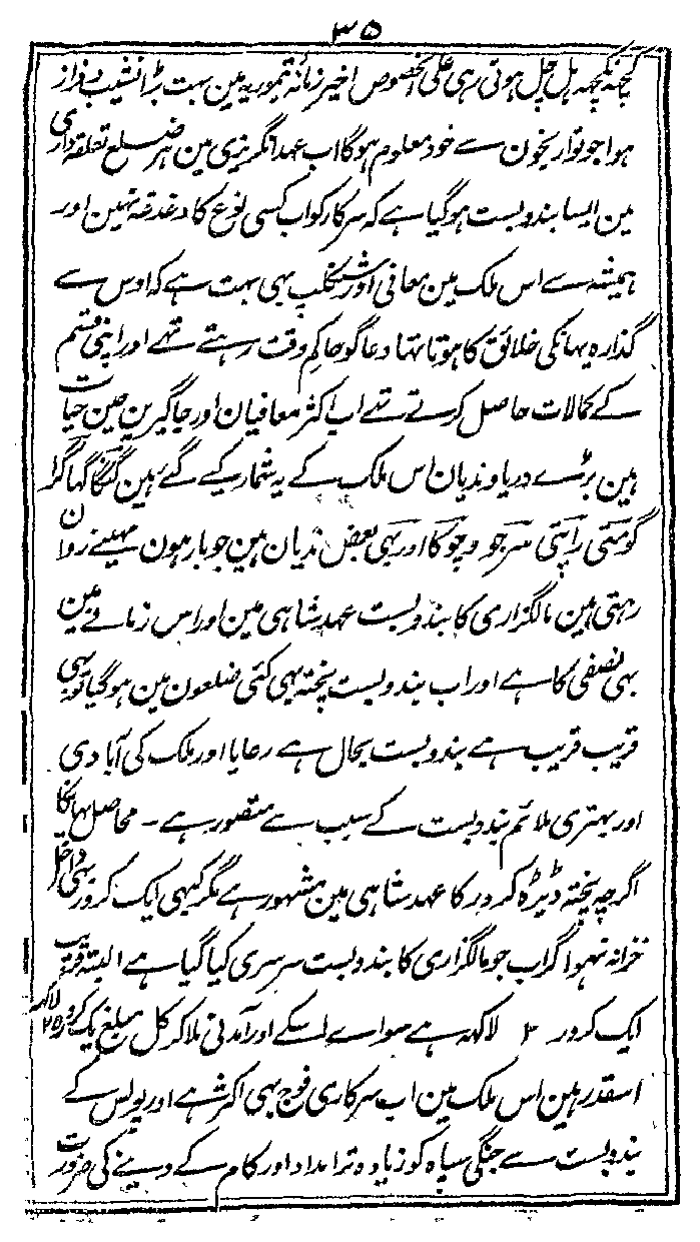 ۳۵
کچھ نکچھ ہل چل ہوتی رہی علی الخصوص اخیر زمانۂ تیموریہ مین بہت بڑا نشیب و فراز
ہوا جو تواریخون سے خود معلوم ہوگا اب عہد انگریزی مین ہر ضلع تعلقہ داری
مین ایسا بندوبست ہوگیا ہے کہ سرکار کو اب کسی نوع کا دغدغہ نہین اور۔
ہمیشہ سے اس ملک مین معافی اور شنکلپ بہی بہت ہے کہ اوس سے
گذارہ یہانکی خلائق کا ہوتا تہا دعا گو حاکم وقت رہتے تہے اور اپنی قسم
کے کمالات حاصل کرتے تہے اب اکثر معافیان اور جاگیرین حین حیات
ہین بڑے دریا و ندیان اس ملک کے یہ شمار کیے گئے ہین گنگا گہاگرا
گومتی راپتی سرجو و چوکا اور بہی بعض ندیان ہین جو بارہون مہینے روان
رہتی ہین مالگزاری کا بندوبست عہد شاہی مین اور اس زمانے مین
بہی نصفی کا ہے اور اب بندوبست پختہ بہی کئی ضلعون مین ہوگیا تو بہی
قریب قریب ہے بندوبست بحال ہے رعایا اور ملک کی آبادی
اور بہتری ملائم بندوبست کے سبب سے متصور ہے ۔ محاصل یہانکا
اگرچہ پختہ ڈیڑہ کرور کا عہد شاہی مین مشہور ہے مگر کبہی ایک کرور بہی داخل
خزانہ نہوا گر اب جو مالگزاری کا بندوبست سرسری کیا گیا ہے البتہ قریب
ایک کرور ۲ لاکہہ ہے سواے اسکے اور آمدنی ملا کر کل مبلغ یک کرور ۲۵ لاکہہ
اسقدر ہین اس ملک مین اب سرکاری فوج بہی اکثر ہے اور پولس کے
بندوبست سے جنگی سپاہ کو زیادہ تر امداد اور کام کے دینے کی ضرورت